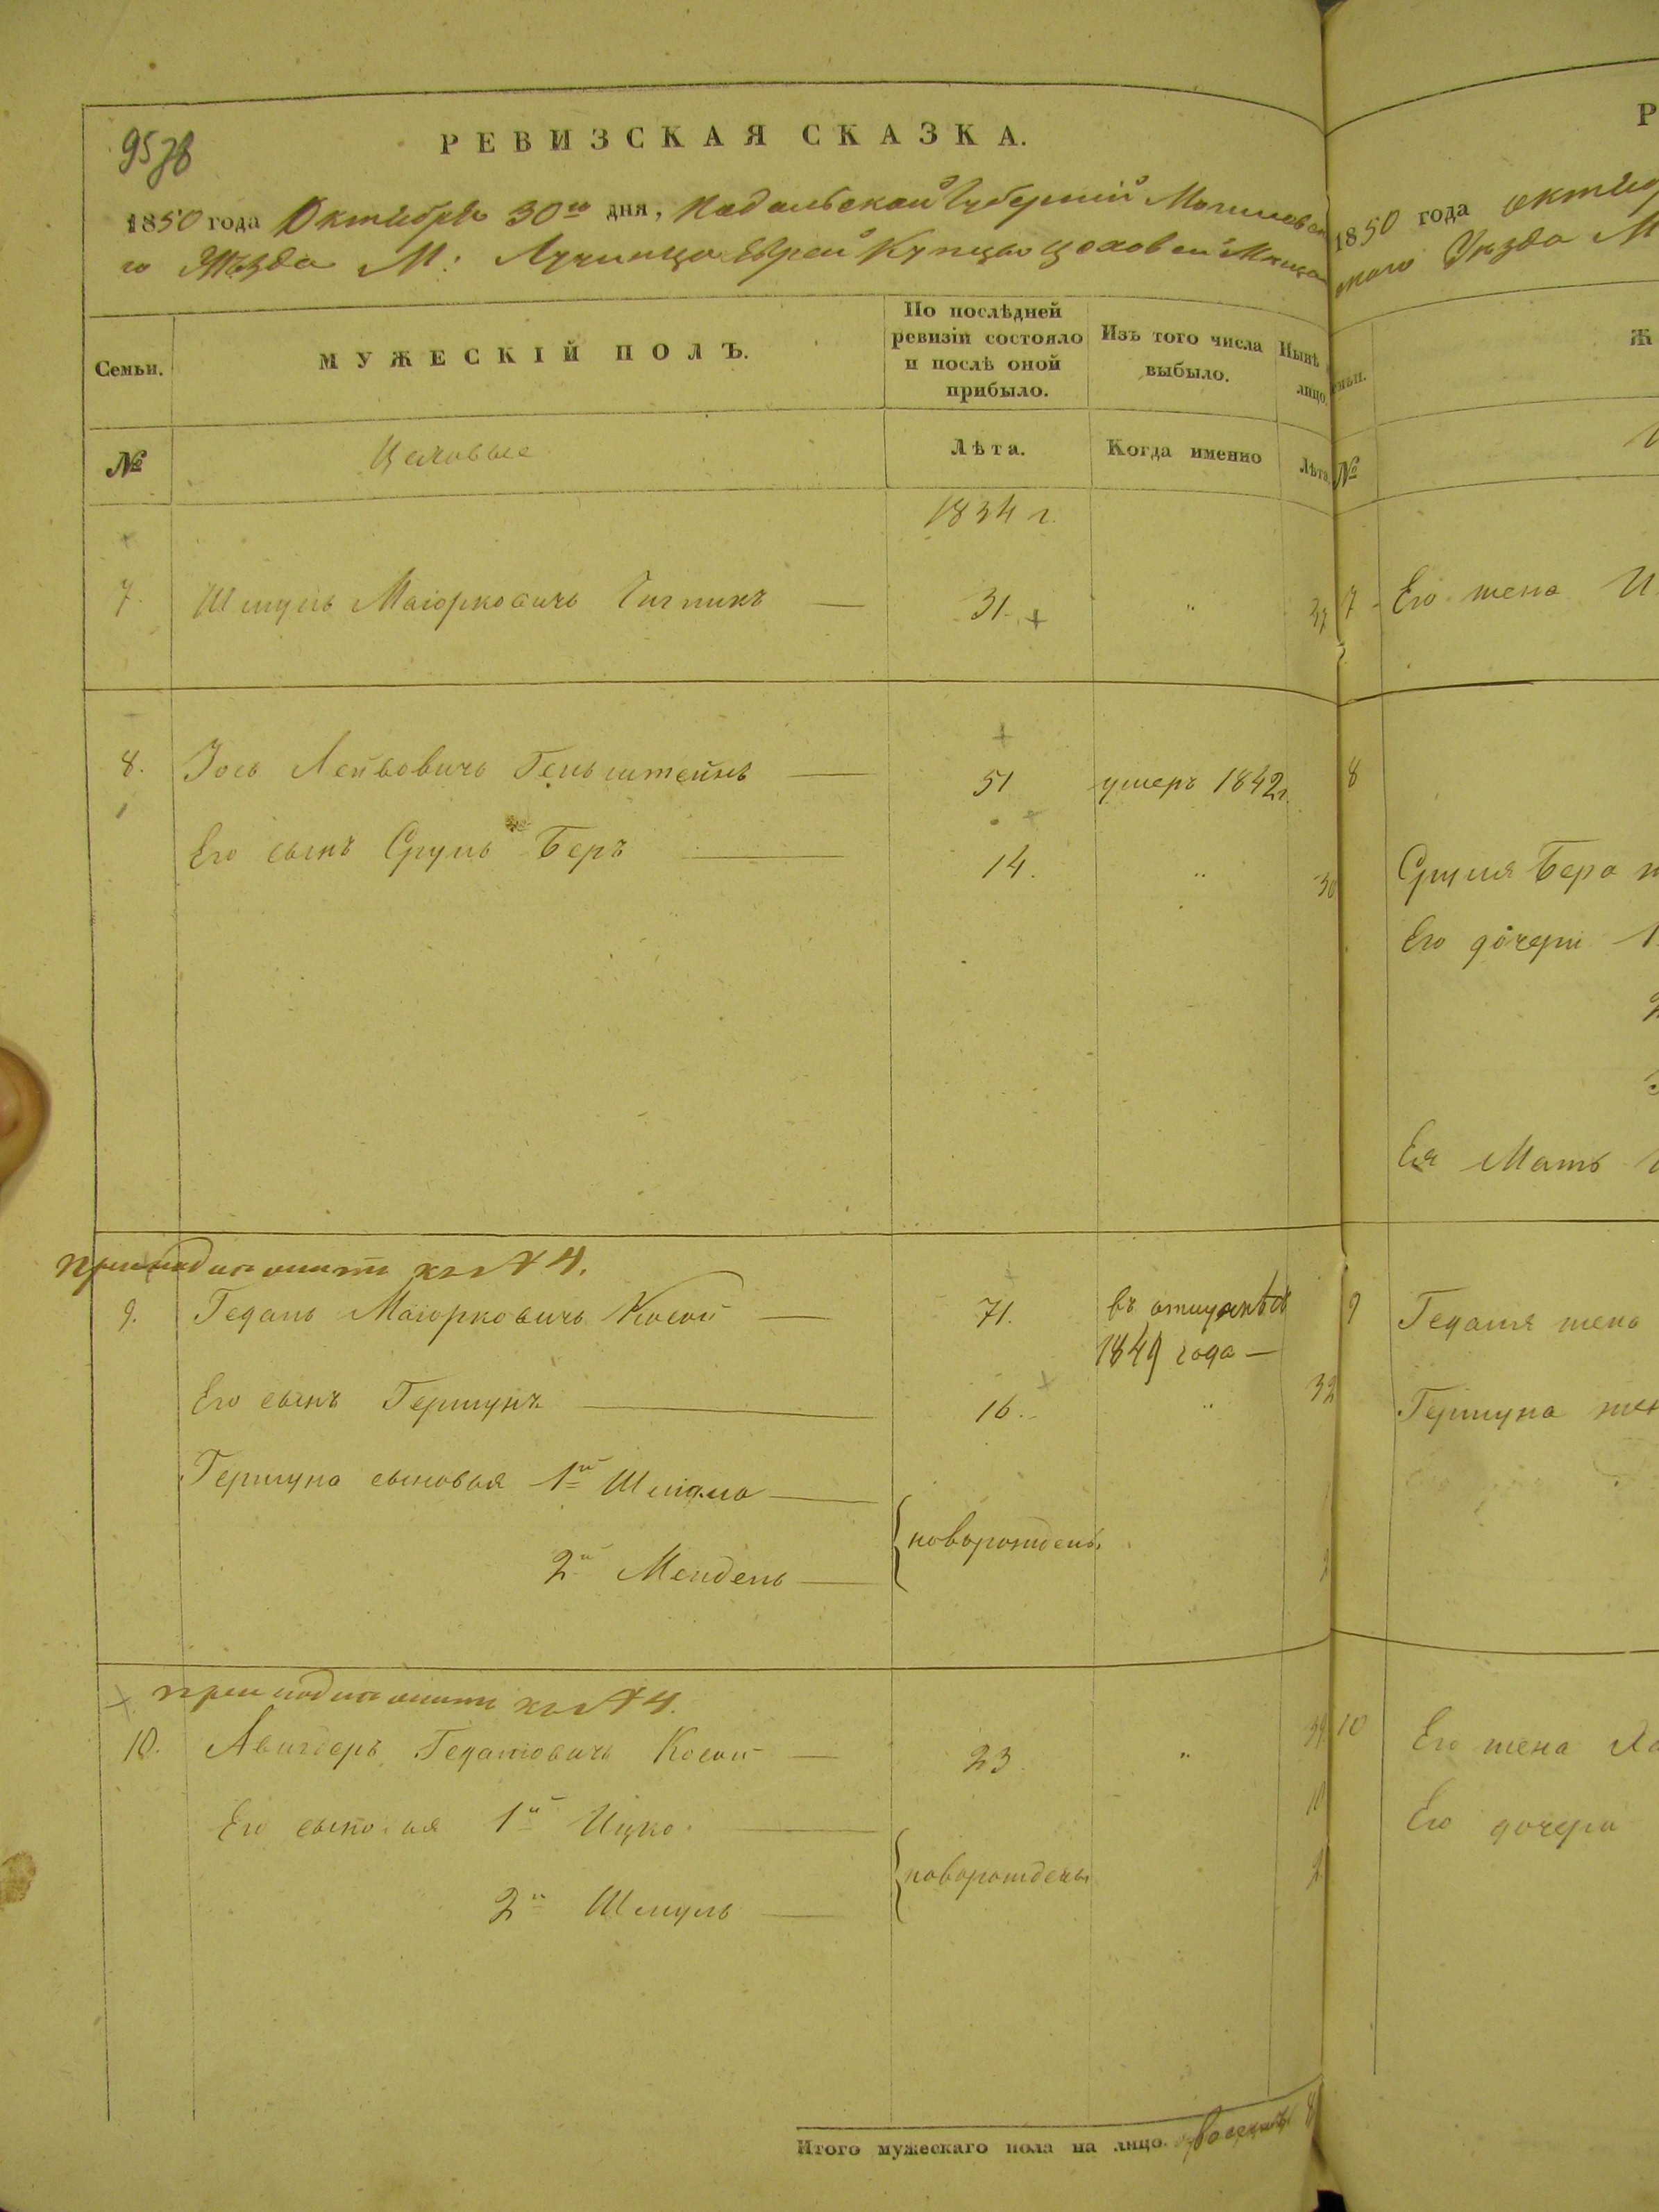 РЕВИЗСКАЯ СКАЗКА.
1850 года Октября 30го дня, Подольской Губерніи Могилевска
го Уѣзда М: Лучинца Еврей Купцы Цеховеи Мѣщан
Семьи.
МУЖЕСКІЙ ПОЛЪ.
По послѣдней
ревизіи состояло
и послѣ оной
прибыло.
Изъ того числа
выбыло.
Нынѣ
лицо.
№
Цеховые
Лѣта.
Когда именно
Лѣта
1834 г.
7. Шмуль Маіорковичь — 31. "
8. Іось Лейбовичь Генштейнъ — 51 умеръ 1842г.
Его сынъ Сруль Беръ — 14. " 30
9. Гедаль Маіорковичь Косой — 71. въ отлучкѣ съ
1849 года —
Его сынъ Гершунъ — 16. " 32
Гершуна сыновья 1й Шлiома —
новорожден.
2й Мендель —
10. Авигдеръ Гедаліовичь Косой — 23 " 39
Его сыновья 1й Ицко —
новорождены
2й Шмуль — 2
Итого мужескаго пола на лицо. восемь 8
Р
1850 года октяб
скаго Уѣзда М
еньи.
Ж
№
7 Его жена
8
Сруля Бера
Его дочери 1
2
Ея Мать
9 Гедаля жена
Гершуна жен
10 Его жена
Его дочери